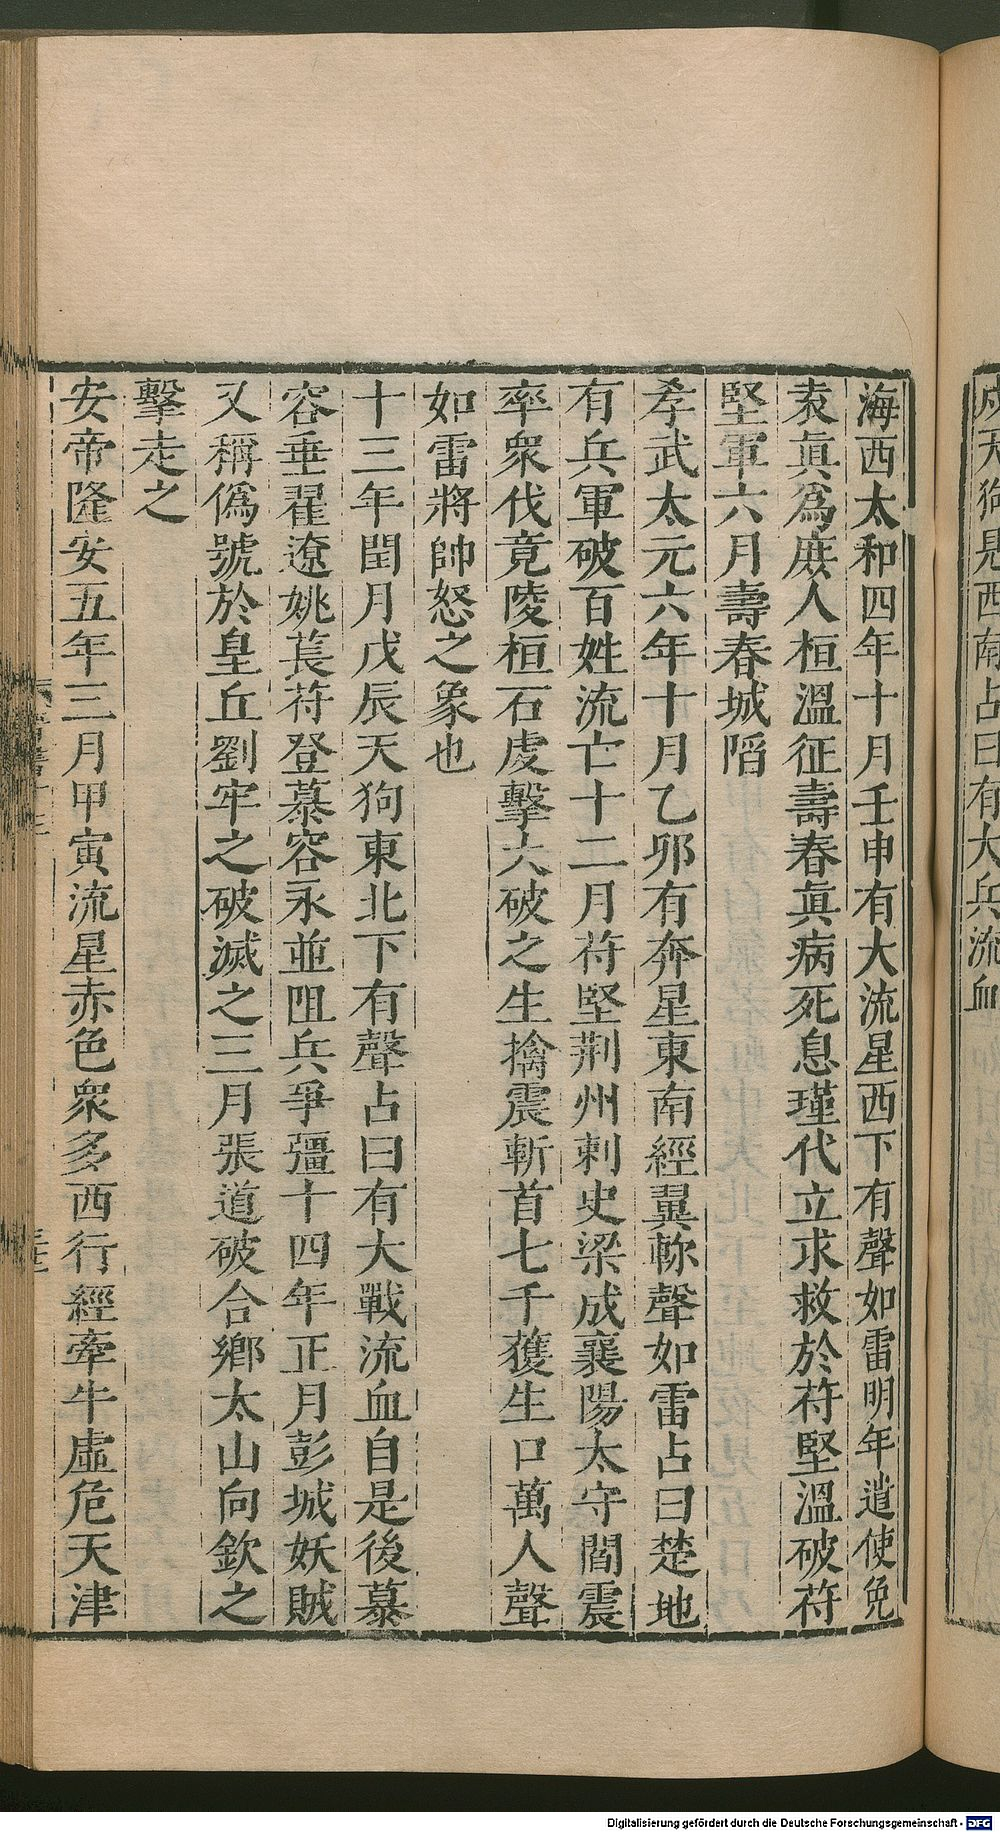 戌天狗見西南占曰有大兵流血
海西太和四年十月壬申有大流星西下有聲如雷明年遣使免
袁眞爲庶人桓溫征壽春眞病死息瑾代立求救於苻堅溫破苻
堅軍六月壽春城陷
孝武太元六年十月乙卯有奔星東南經翼軫聲如雷占曰楚地
有兵軍破百姓流亡十二月苻堅荆州刺史梁成襄陽太守閻震
率衆伐竟陵桓石虔擊大破之生擒震斬首七千獲生口萬人聲
如雷將帥怒之象也
十三年閏月戊辰天狗東北下有聲占曰有大戰流血自是後慕
容垂翟遼姚萇苻登慕容永並阻兵爭彊十四年正月彭城妖賊
又稱僞號於皇丘劉牢之破滅之三月張道破合鄉太山向欽之
擊走之
安帝隆安五年三月甲寅流星赤色衆多西行經牽牛虛危天津
Digitalisierung gefördert durch die Deutsche Forschungsgemeinschaft - DFG